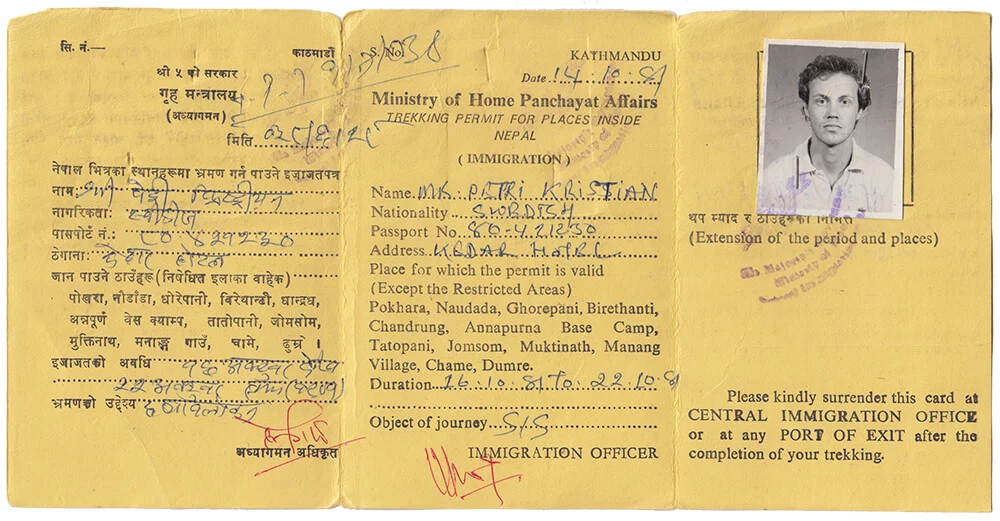 सि. नं.—
काठमाडौं
श्री ५ को सरकार
गृह मन्त्रालय
(अध्यागमन)
मिति
नेपाल भित्रका स्थानहरूमा भ्रमण गर्न पाउने इजाजतपत्र
नाम: श्री पेत्री क्रिस्टीयन
नागरिकता: स्वीडीस
पासपोर्ट नं.: ८० ४२१२३०
ठेगाना: केदार होटल
जान पाउने ठाउँहरू (निषेधित इलाका वाहेक)
पोखरा, नौडाँडा, घोरेपानी, विरेथान्टी, घान्द्रुध,
अन्नपूर्ण वेस क्याम्प, तातोपानी, जोमसोम,
मुक्तिनाथ, मनाङ्ग गाउँ, चामे, डुम्रे ।
इजाजतको अवधि १६ अक्टुबर देखि
२२ अक्टुबर
भ्रमणको उद्देश्य
अध्यागमन अधिकृत
S. No.
KATHMANDU
Date 14.10.81
Ministry of Home Panchayat Affairs
TREKKING PERMIT FOR PLACES INSIDE
NEPAL
(IMMIGRATION)
Name MR PETRI KRISTIAN
Nationality SWEDISH
Passport No. 80-421230
Address KEDAR HOTEL
Place for which the permit is valid
(Except the Restricted Areas)
Pokhara, Naudada, Ghorepani, Birethanti,
Chandrung, Annapurna Base Camp,
Tatopani, Jomsom, Muktinath, Manang
Village, Chame, Dumre.
Duration 16.10.81 TO 22.10.81
Object of journey S/S
IMMIGRATION OFFICER
थप म्याद र ठाउँहरूको निमित्त
(Extension of the period and places)
His Majesty's
Ministry of
Please kindly surrender this card at
CENTRAL IMMIGRATION OFFICE
or at any PORT OF EXIT after the
completion of your trekking.